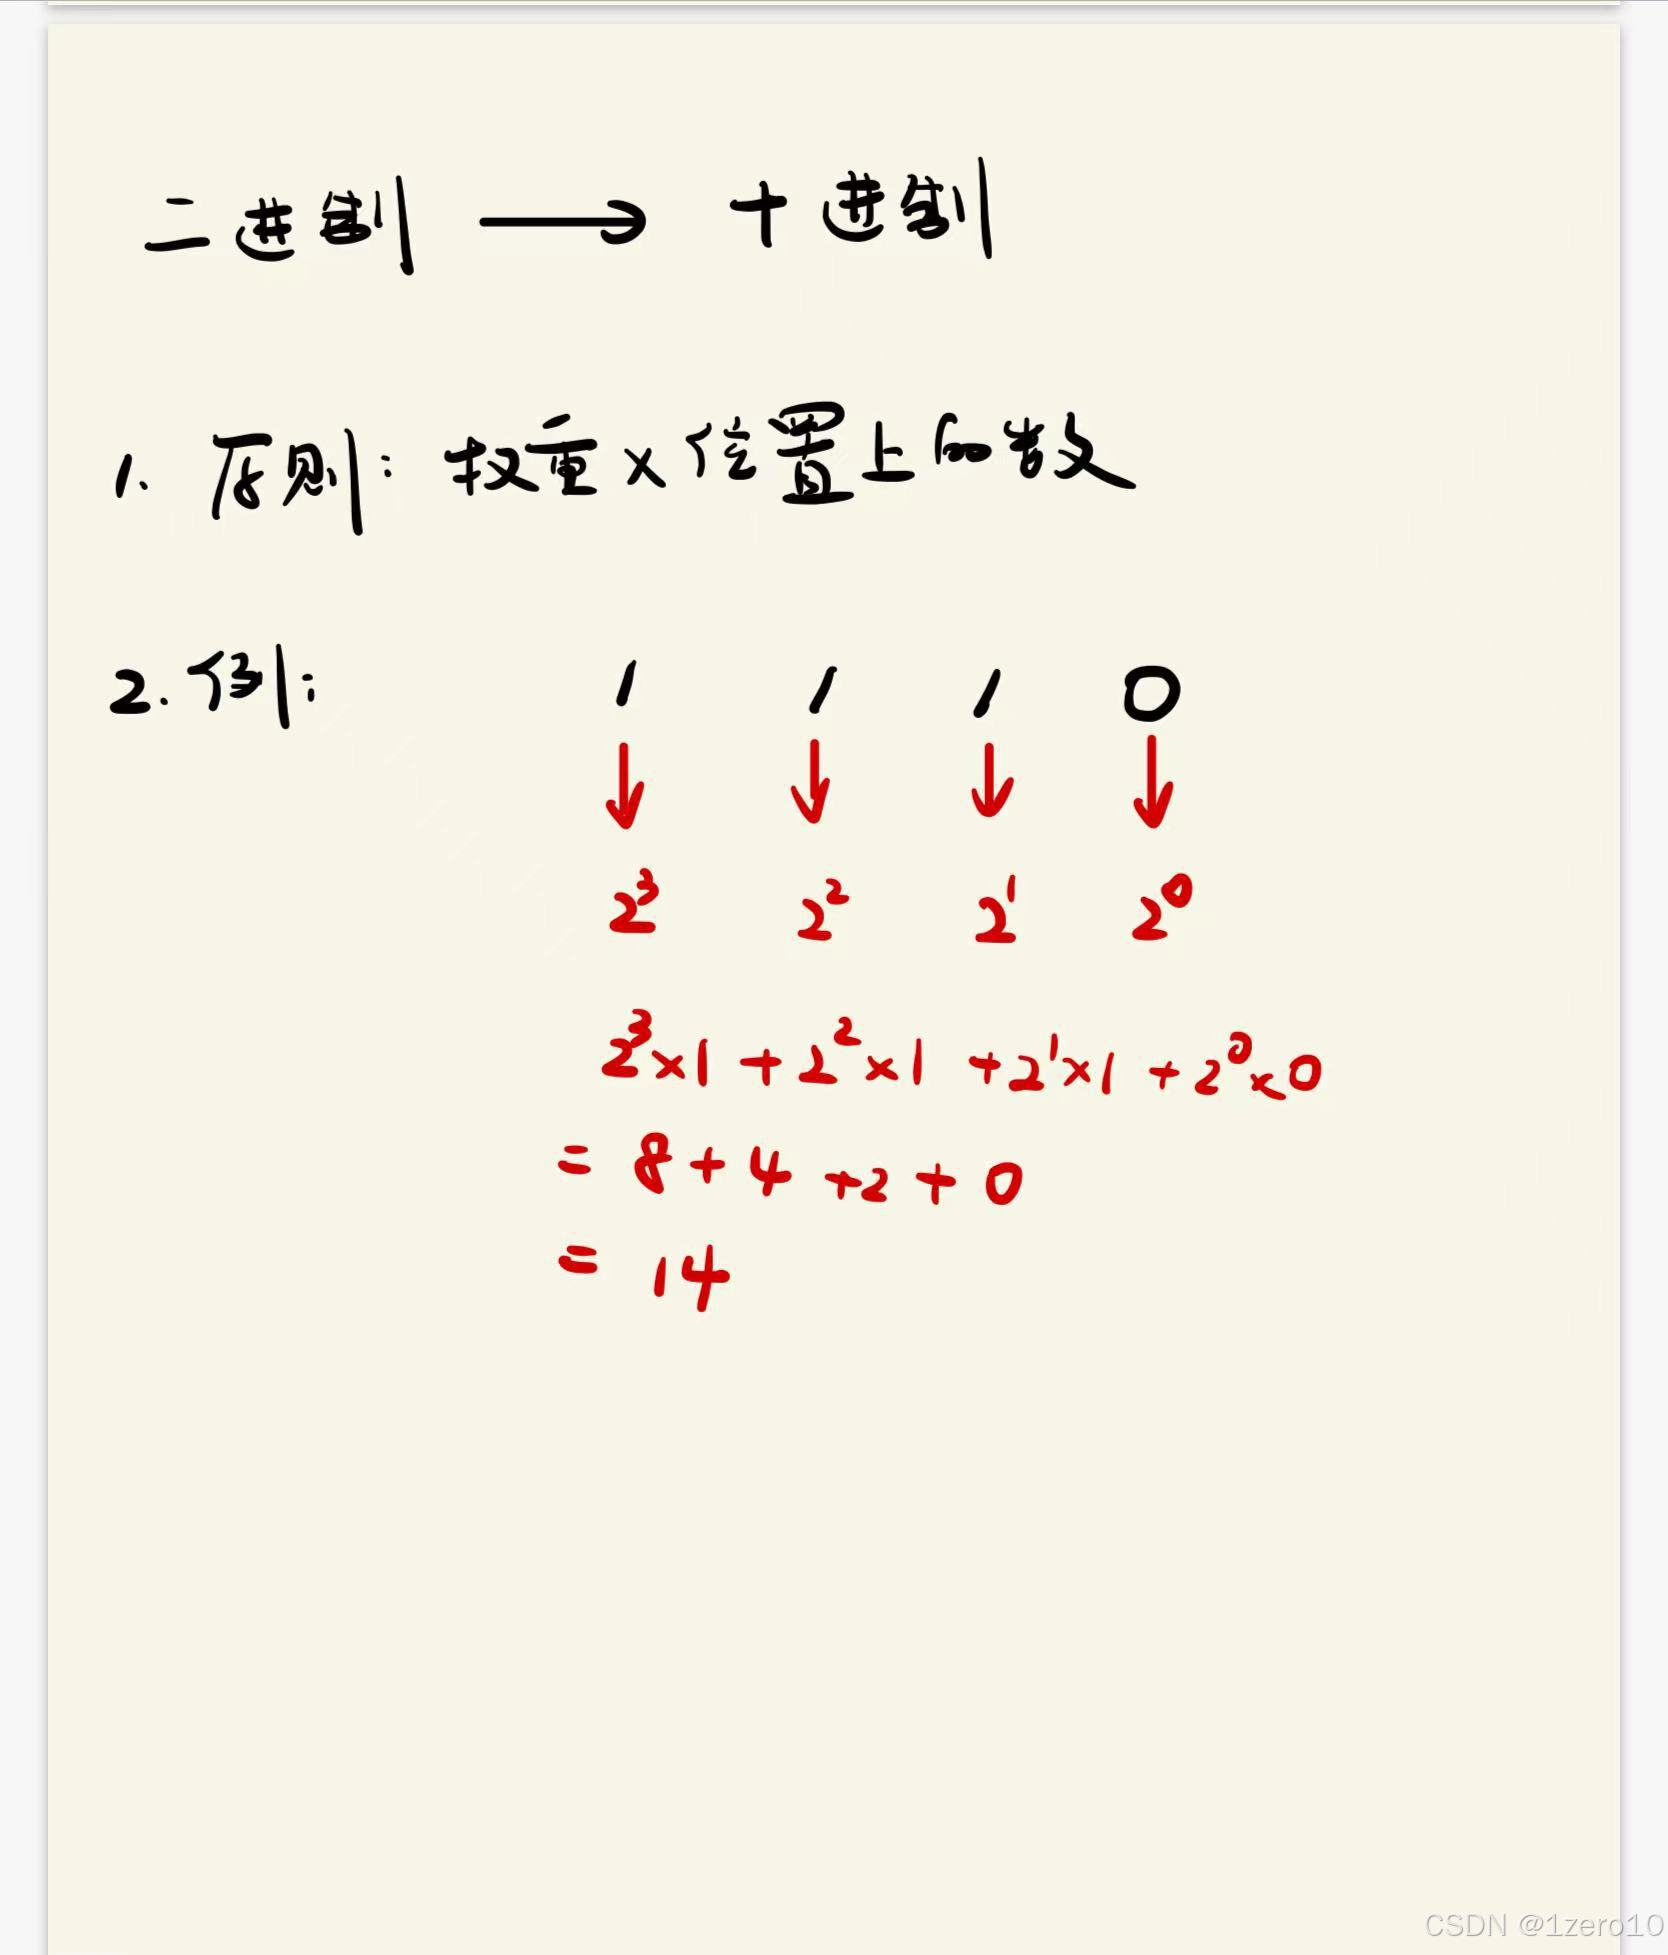 二进制 → 十进制
1. 原则: 权重×位置上的数
2. 例: 1 1 1 0
↓ ↓ ↓ ↓
2³ 2² 2¹ 2⁰
2³×1 + 2²×1 + 2¹×1 + 2⁰×0
= 8 + 4 + 2 + 0
= 14
CSDN @1zero10